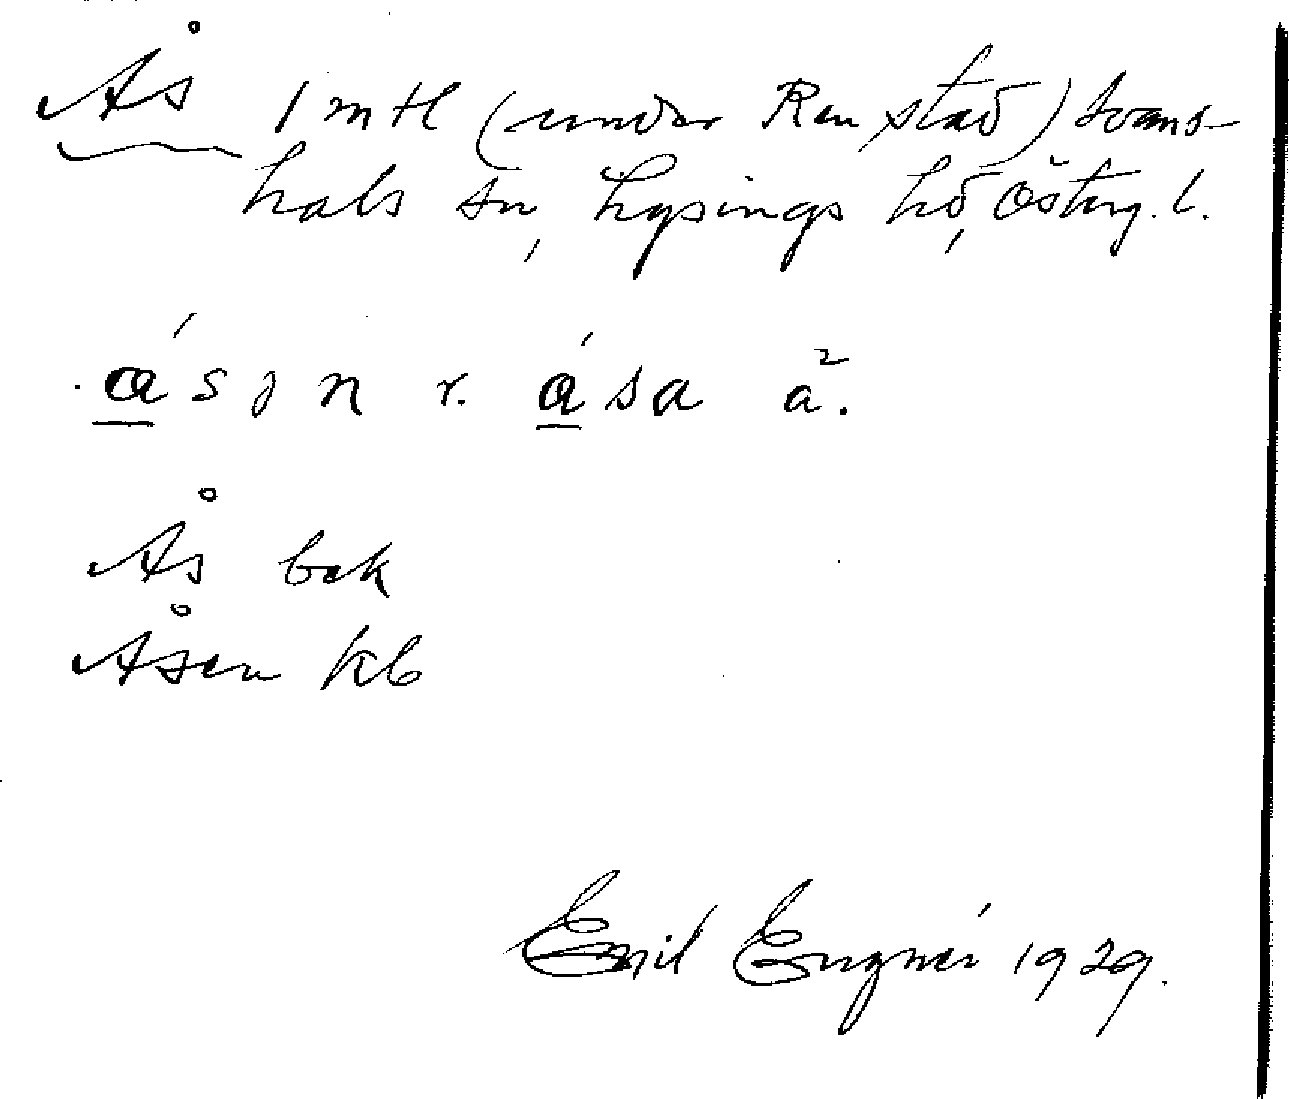 Ås 1 mtl (under Renstad) Svans-
hals sn, Lysings hd, Österg.l.
ásən r. ása a².
Ås bok
Åsen kb
Emil 1929.